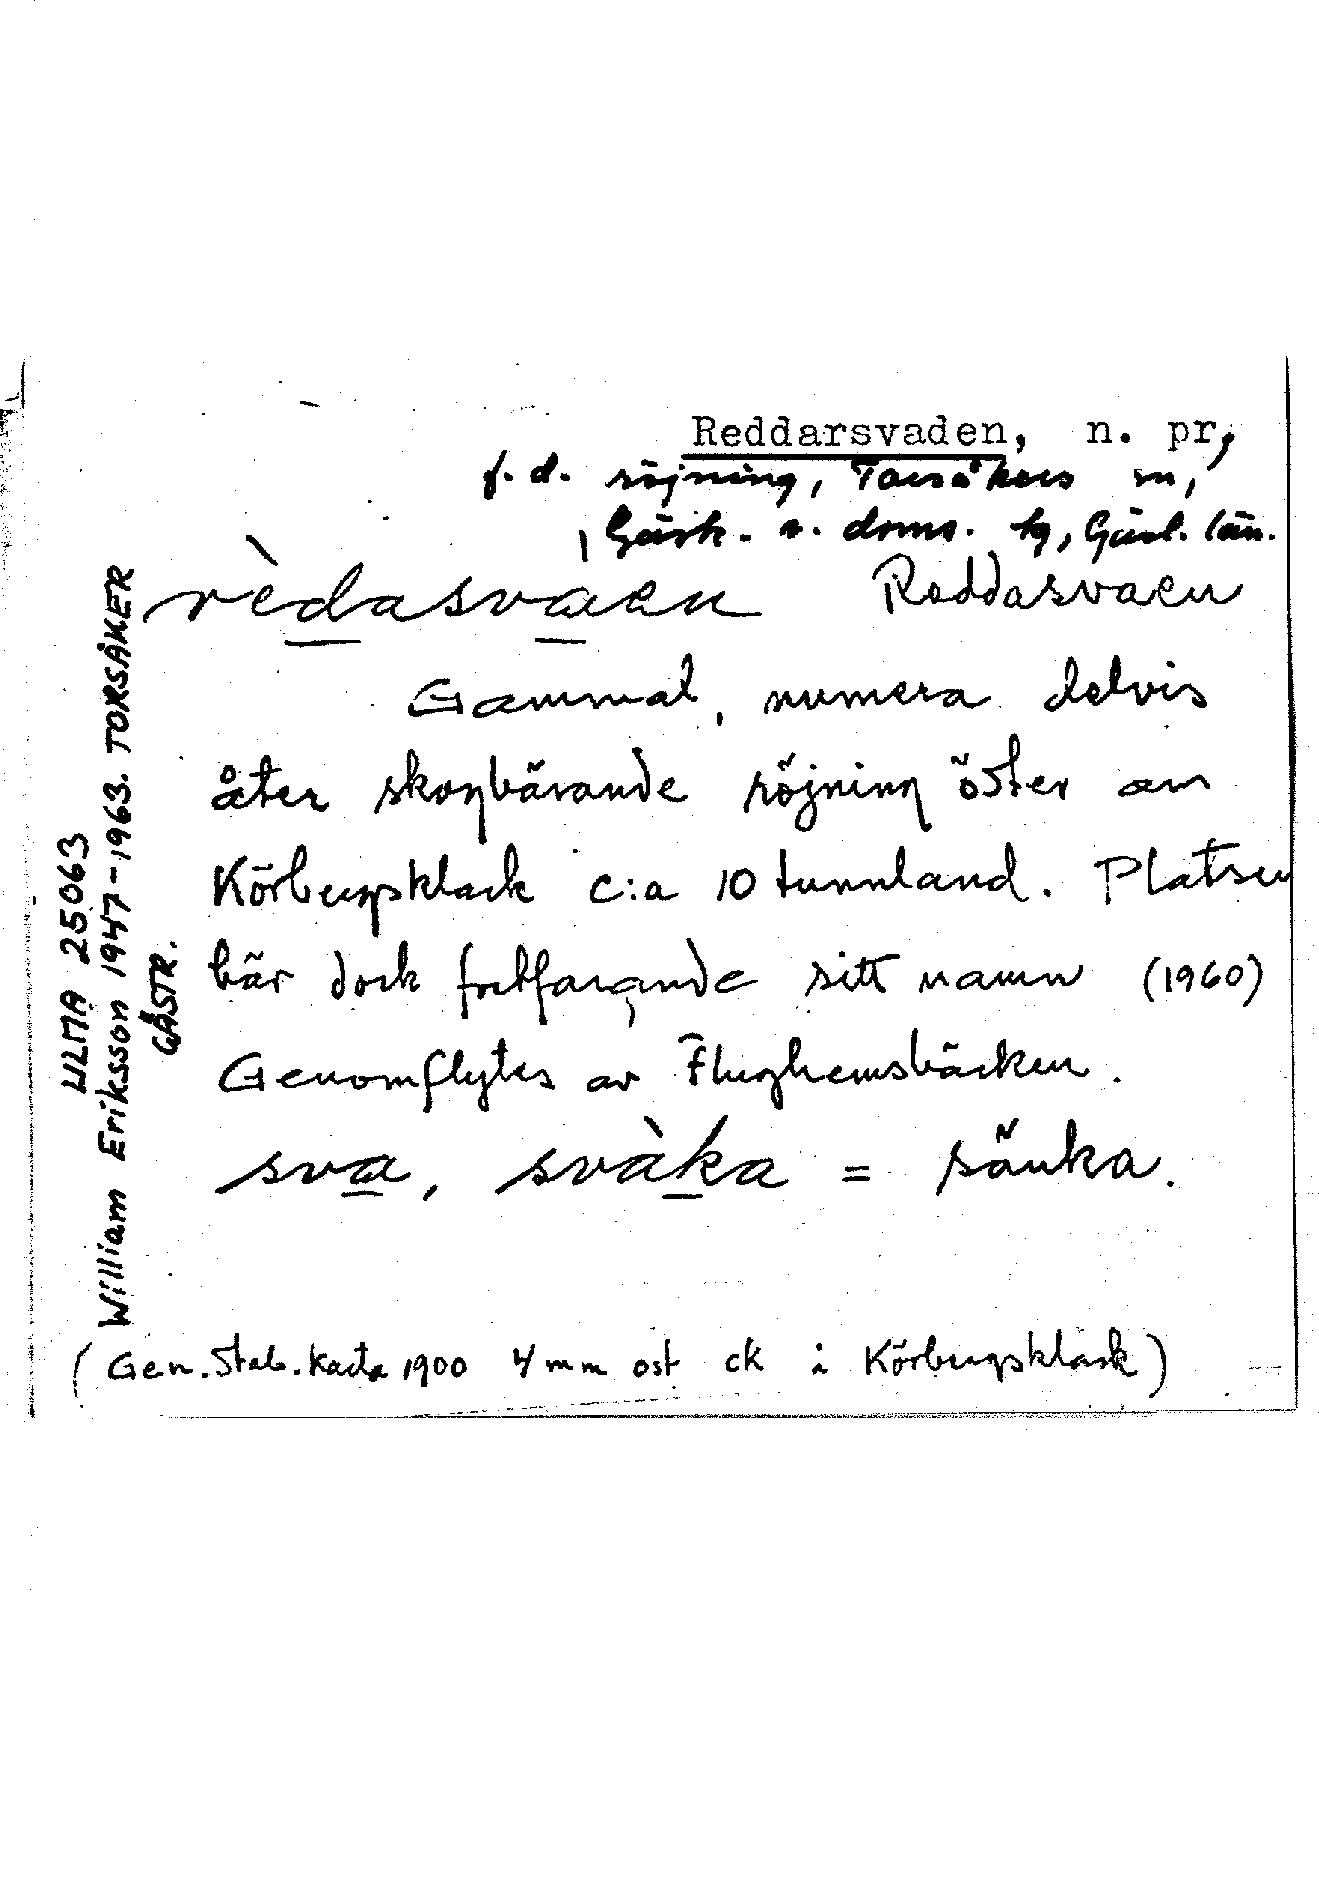 Reddarsvaden, n. pr,
f. d. röjning, Torsåkers sn,
Gästr. ö. doms. tg, Gävl. län.
rèdasvaen Reddasvaen
Gammal, numera delvis
åter skogbärande röjning öster om
Körbergsklack c:a 10 tunnland. Platsen
bär dock fortfarande sitt namn (1960)
Genomflytes av Flughemsbäcken.
sva, svàka = sänka.
(Gen. Stab. karta 1900 4 mm ost ck i Körbergsklack)
ULMA 25063
William Eriksson 1947-1963. TORSÅKER
GÄSTR.